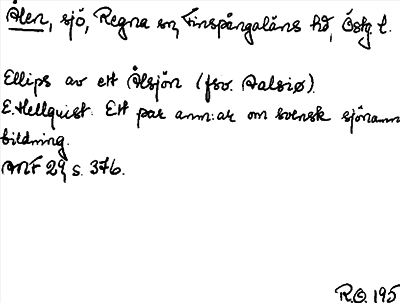 Ålen, sjö, Regna sn, Finspångaläns hd, Östg l.
Ellips av ett Ålsjön (fsv. Aalsiø).
E. Hellquist. Ett par anm:ar om svensk sjönamns
bildning.
ANF 29, s. 376.
R.O. 195